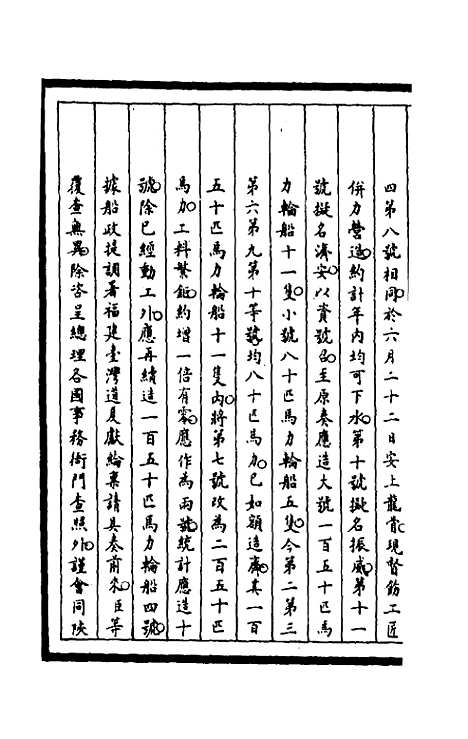 四第八號相同於六月二十二日安上龍骸現督飭工匠
併力營造約計年內均可下水第十號擬名振威第十一
號擬名濟安以資號召至原奏應造大號一百五十匹馬
力輪船十一隻小號八十匹馬力輪船五隻今第二第三
第六第九第十等號均八十匹馬力已如額造齊其一百
五十匹馬力輪船十一隻內將第七號改為二百五十匹
馬加工料繁鉅約增一倍有零應作為兩號統計應造十
號除已經動工外應再續造一百五十匹馬力輪船四號
據船政提調署福建臺灣道夏獻綸稟請具奏前來臣等
覆查無異除咨呈總理各國事務衙門查照外謹會同陝